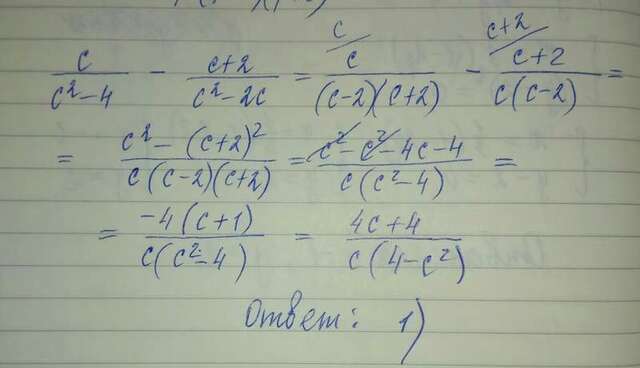 c/(c²-4) - c+2/(c²-2c) = c/ c/((c-2)(c+2)) - c+2/ c+2/(c(c-2)) =
= c²-(c+2)²/(c(c-2)(c+2)) = c²-c²-4c-4/(c(c²-4)) =
= -4(c+1)/(c(c²-4)) = 4c+4/(c(4-c²))
Ответ: 1)